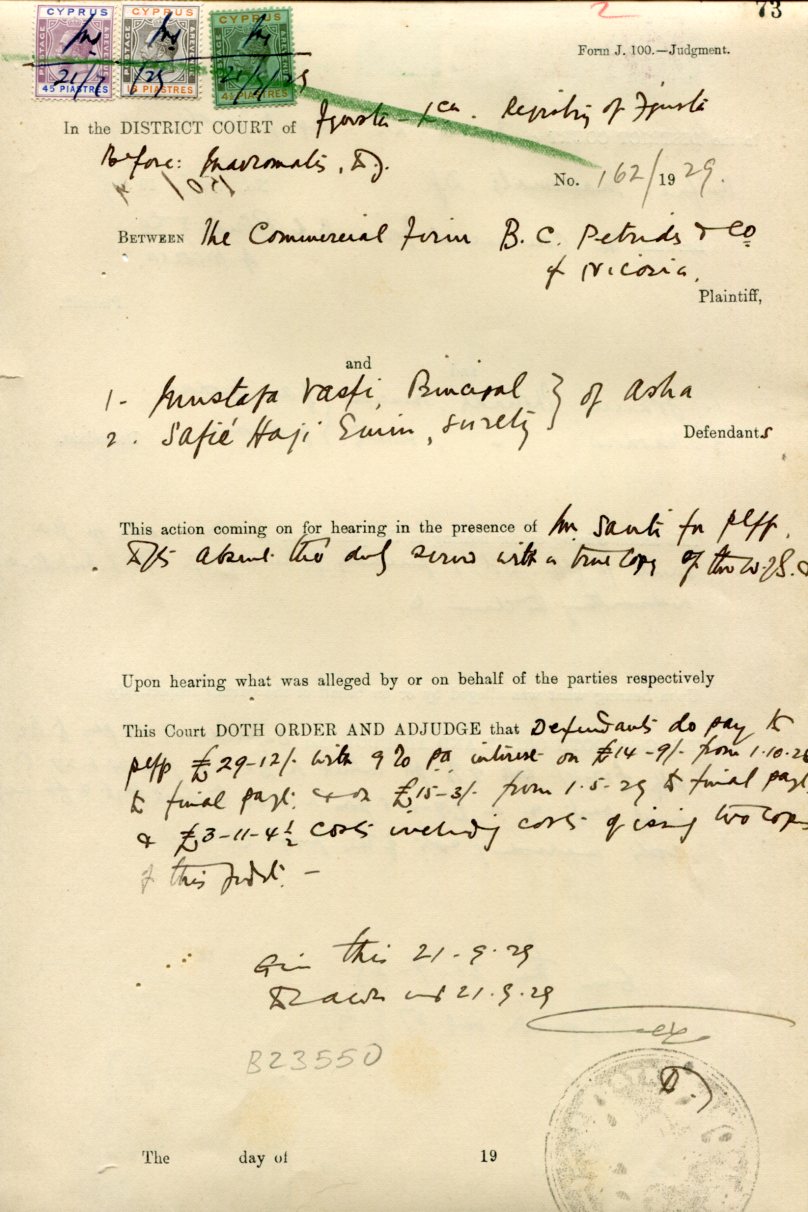 2
73
CYPRUS CYPRUS CYPRUS
POSTAGE REVENUE
45 PIASTRES 18 PIASTRES 45 PIASTRES
21/9/29
Form J. 100.—Judgment.
In the DISTRICT COURT of Registry of
Before: Mavromatis, DJ.
No. 162/1929.
BETWEEN The Commercial Firm B. C. Petrides & Co
of Nicosia,
Plaintiff,
and
1- Mustafa Vasfi, Principal } of Asha
2. Safié Haji Emin, surety
Defendants
This action coming on for hearing in the presence of Mr Santi for plff.
absent tho' duly served with a true copy of the w/s. &
Upon hearing what was alleged by or on behalf of the parties respectively
This Court DOTH ORDER AND ADJUDGE that Defendants do pay to
plff £29-12/- with 9% pa interest on £14-9/- from 1.10.28
to final payt. & on £15-3/- from 1.5.29 to final payt.
& £3-11-4½ costs including costs of issing two cops
of this judt. -
Given this 21-9-29
Drawn up 21.9.29
DJ
B23550
The day of 19